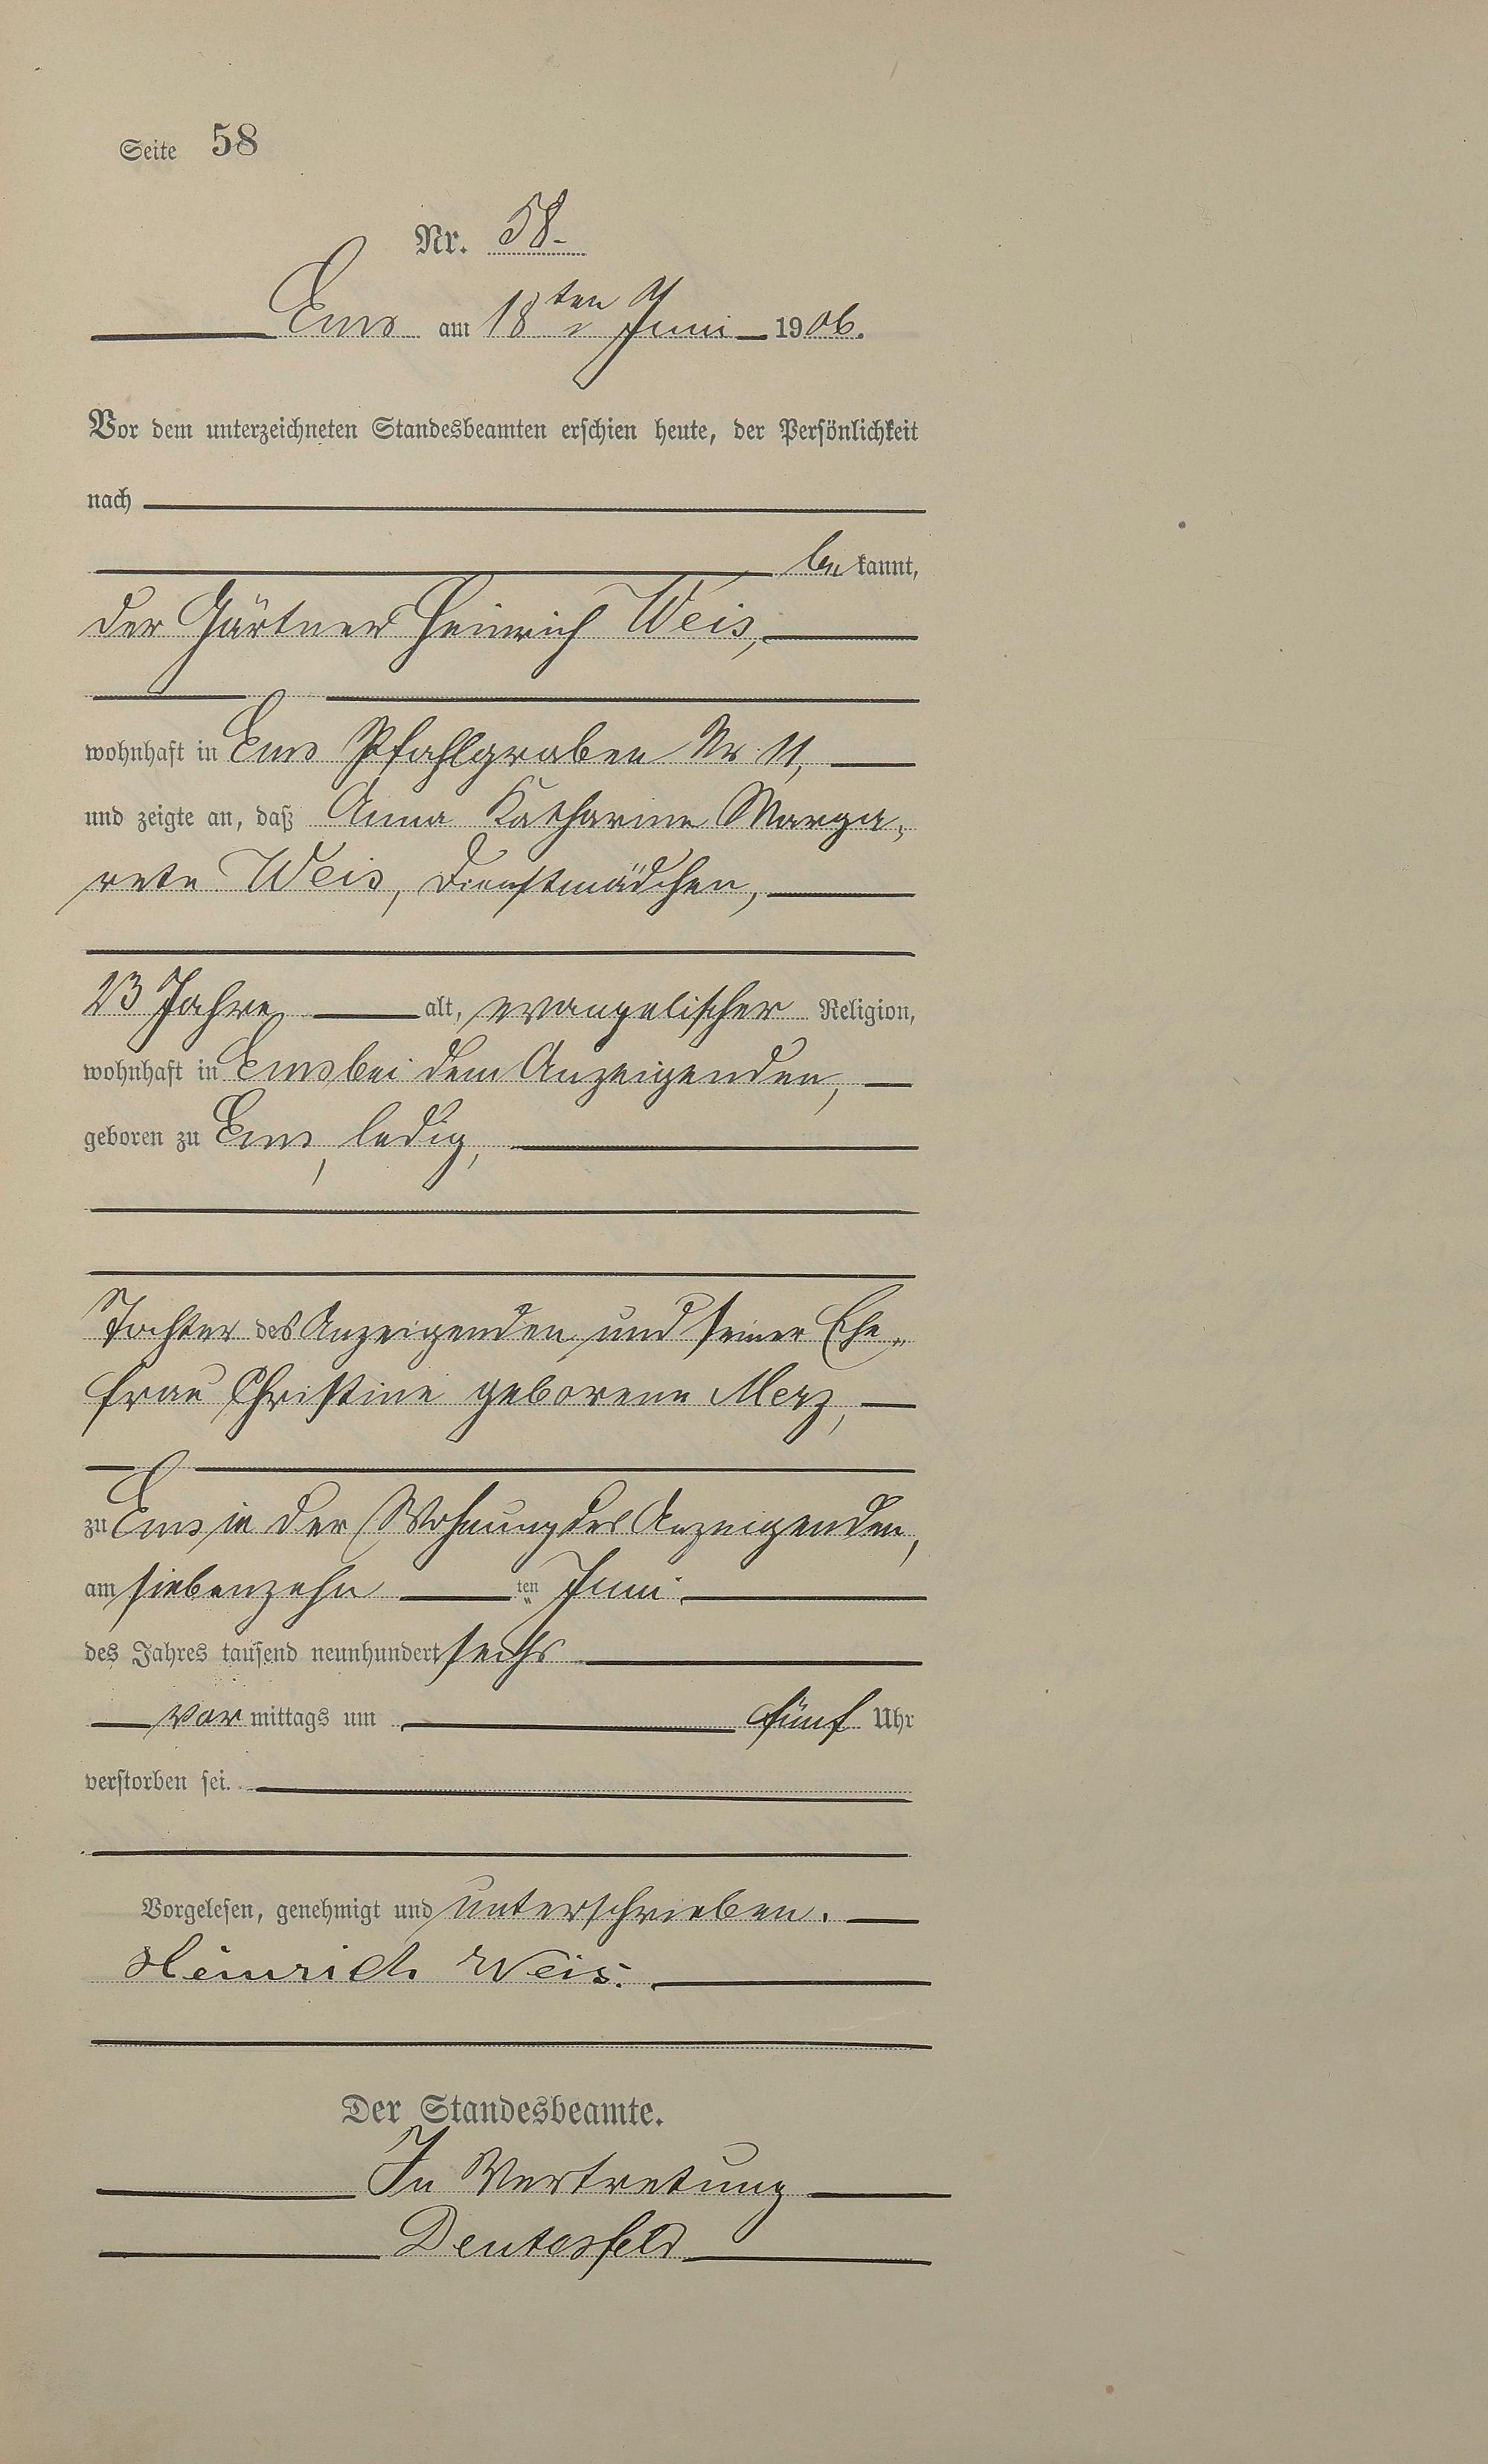 Seite 58
Nr. 58.
Ems am 18ten Juni 1906.
Vor dem unterzeichneten Standesbeamten erschien heute, der Persönlichkeit
nach
bekannt,
der Gärtner Heinrich Weis,
wohnhaft in Ems Pfahlgraben Nr. 11,
und zeigte an, daß Anna Katharine Marga-
rete Weis, Dienstmädchen,
23 Jahre alt, evangelischer Religion,
wohnhaft in Ems bei dem Anzeigenden,
geboren zu Ems, ledig,
Tochter des Anzeigenden und seiner Ehe-
frau Christine geborene Merz,
zu Ems in der Wohnung des Anzeigenden,
am siebenzehn ten Juni
des Jahres tausend neunhundert sechs
vor mittags um fünf Uhr
verstorben sei.
Vorgelesen, genehmigt und unterschrieben.
Heinrich Weis.
Der Standesbeamte.
In Vertretung